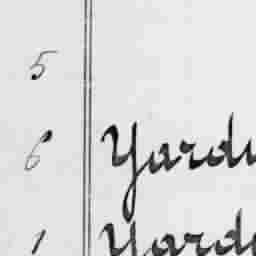 5
6 Yard
1 Yard